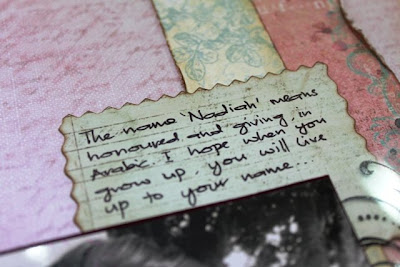 The name 'Nadiah' means
honoured and giving, in
Arabic. I hope when you
grow up, you will live
up to your name...